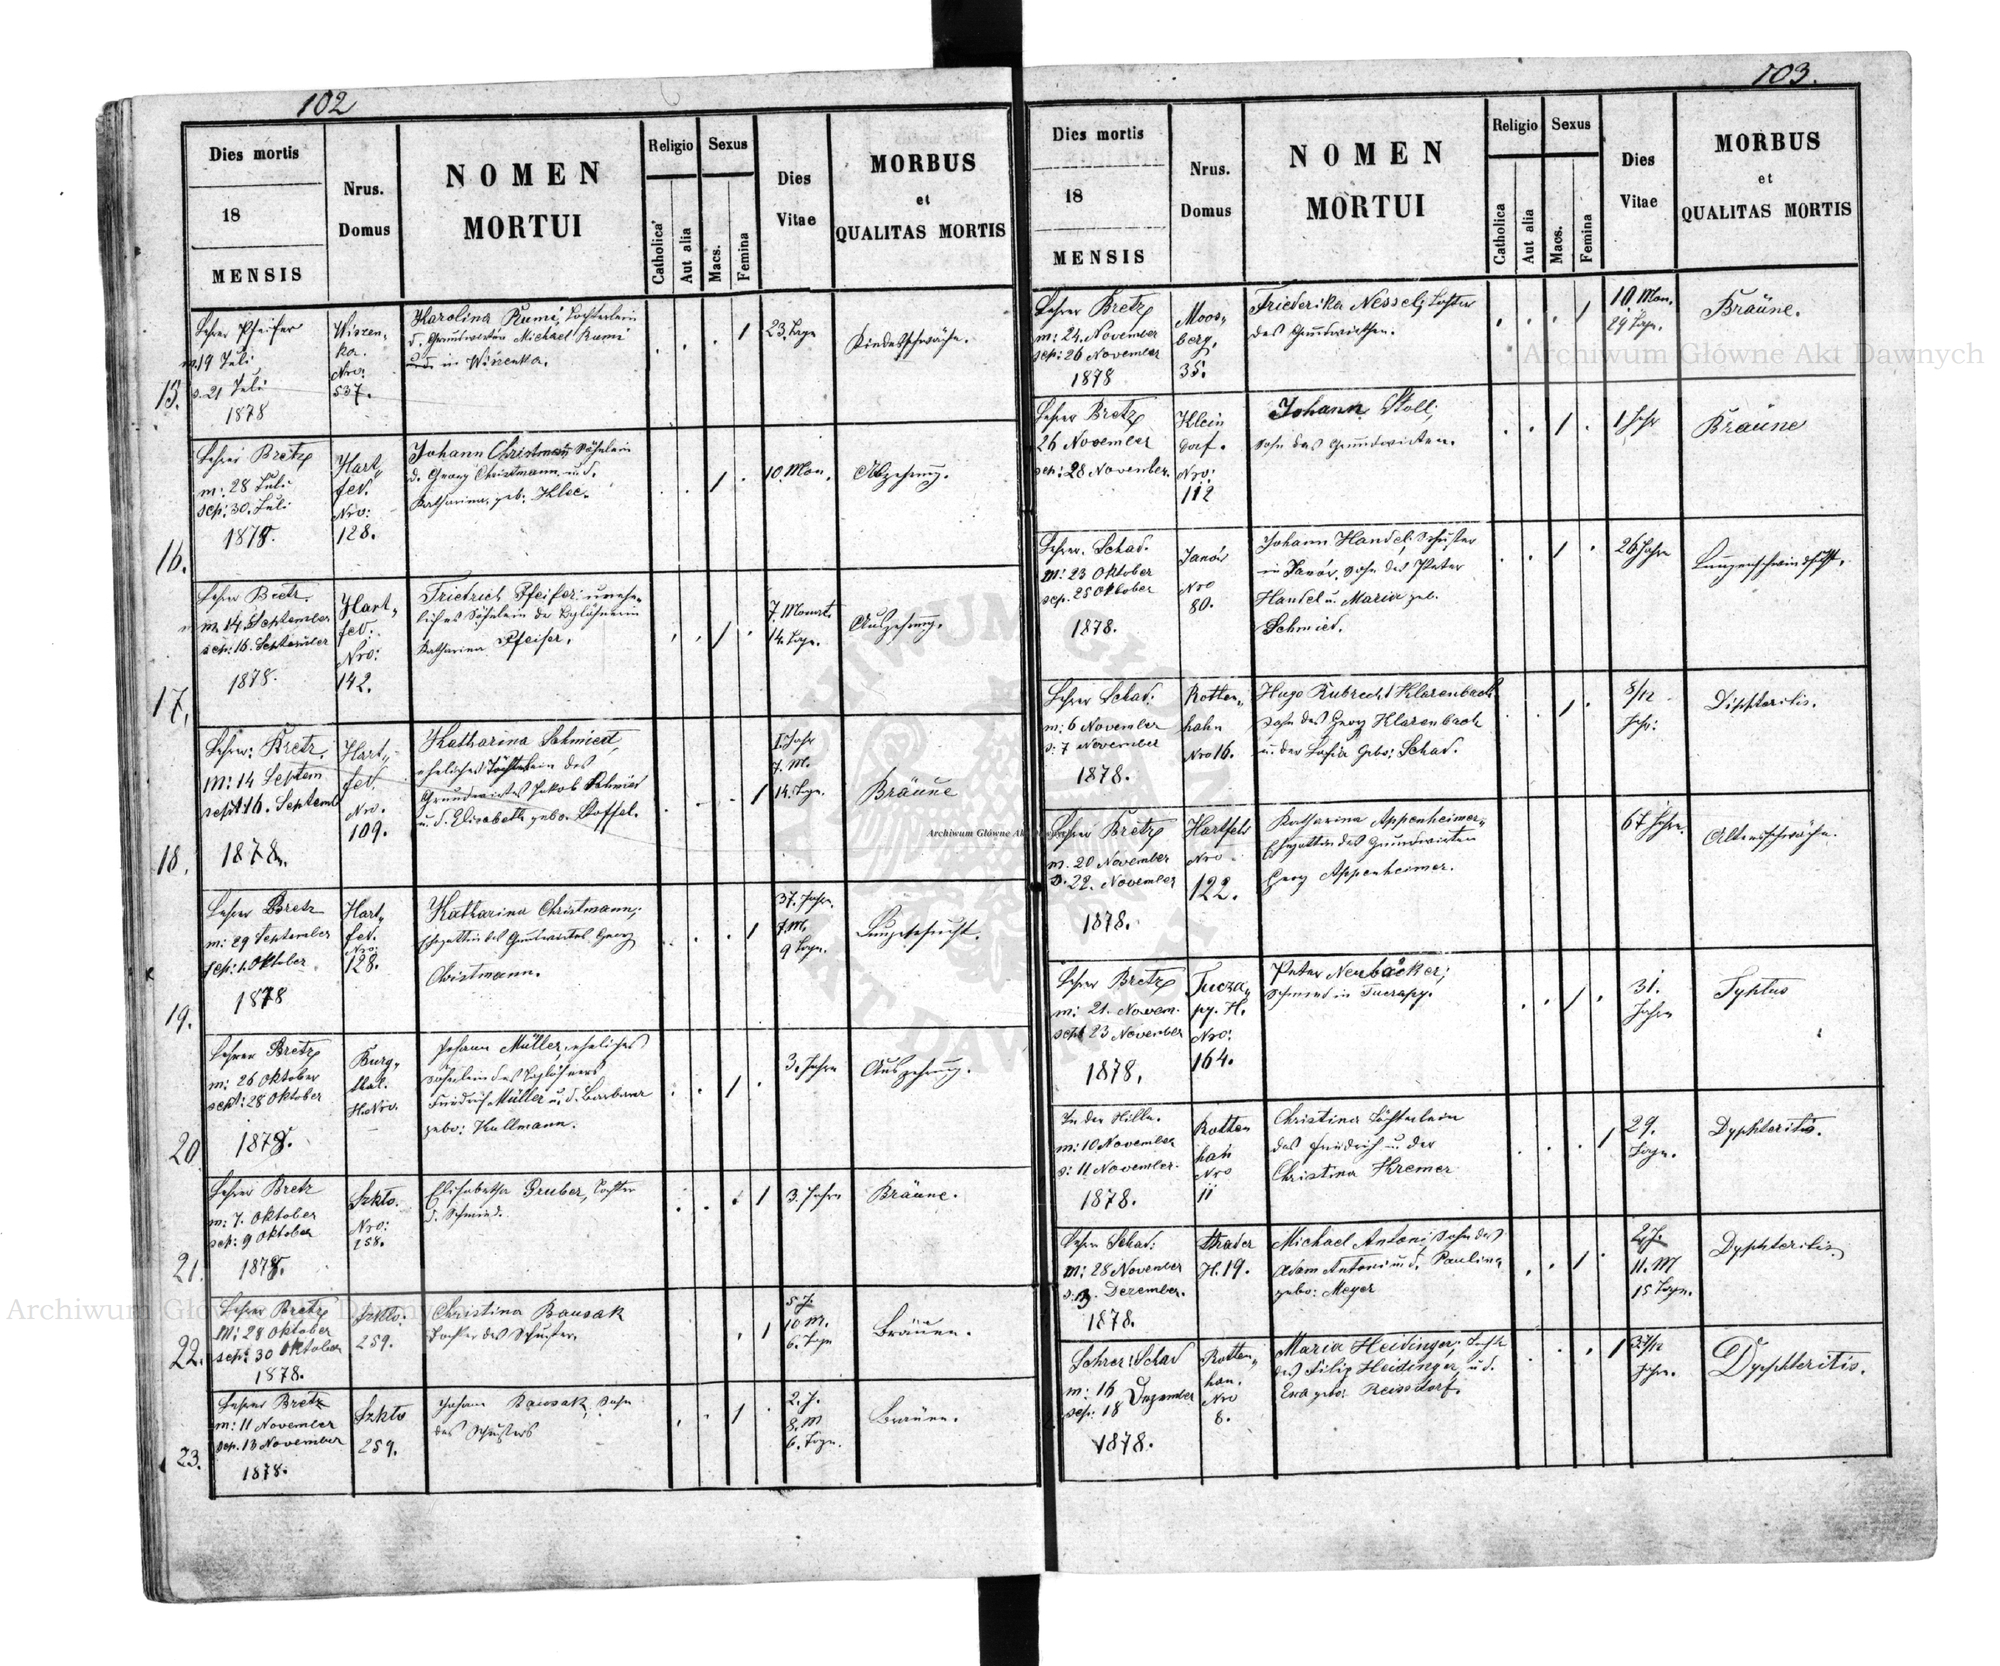 102
Dies mortis
18
MENSIS
Nrus.
Domus
NOMEN
MORTUI
Religio
Catholica
Aut alia
Sexus
Macs.
Femina
Dies
Vitae
MORBUS
et
QUALITAS MORTIS
15.
Lehrer Pfeifer
m. 19 Juli
s. 21 Juli
1878
Wiszen-
ka.
Nro:
537.
Karolina Rumi, Töchterlein
d. Grundwirten Michael Rumi
in Wiszenka.
23. Tage
Kindesschwäche.
16.
Lehrer Bretz
m: 28 Juli
sep: 30. Juli
1878.
Hart-
fed.
Nro:
128.
Johann Christmann Söhnlein
d. Georg Christmann u. d.
Katharina, geb. Klee.
10. Mon.
Abzehrung.
17.
Lehrer Bretz.
m. 14. September
sep: 16. September
1878.
Hart-
fed:
Nro:
142.
Friedrich Pfeifer unehe-
liches Söhnlein der Taglöhnerin
Katharina Pfeifer.
7. Monat
14. Tage.
Auszehrung.
18.
Lehrer: Bretz.
m: 14 Septem
sept 16. Septemb
1878.
Hart-
fed.
Nro.
109.
Katharina Schmied,
eheliches Töchterlein des
Grundwirtes Jakob Schmied
u. d. Elisabeth gebo. Stoffel.
1. Jahr
7. M.
14. Tage.
Bräune
19.
Lehrer Bretz
m: 29 September
sep: 1. Oktober
1878
Hart-
fed.
Nro:
128.
Katharina Christmann;
Ehegattin des Grundwirtes Georg
Christmann.
37. Jahre.
7. M.
9 Tage.
20
Lehrer Bretz
m: 26 Oktober
sept: 28 Oktober
1878.
Burg-
thal.
H. Nro.
Johann Müller, eheliches
Söhnlein des Taglöhners
Friedrich Müller u. d. Barbara
gebo: Kullmann.
3. Jahre
Auszehrung.
21.
Lehrer Bretz
m: 7. Oktober
sep: 9 Oktober
1878.
Szkto.
Nro:
258.
Elisabetha Gruber, Tochter
d. Schmied.
3. Jahre
Bräune.
22.
Lehrer Bretz
m: 28 Oktober
sept: 30 Oktober
1878.
Szkto:
259.
Christina Bausak
Tochter des Schuster.
5 J.
10 M.
6. Tage
Bräune.
23.
Lehrer Bretz
m: 11 November
sep. 13 November
1878.
Szkto
259.
Johann Bausak, Sohn
des Schusters
2. J.
8. M
6. Tage.
Bräune.
103.
Dies mortis
18
MENSIS
Nrus.
Domus
NOMEN
MORTUI
Religio
Catholica
Aut alia
Sexus
Macs.
Femina
Dies
Vitae
MORBUS
et
QUALITAS MORTIS
Lehrer Bretz
m: 24. November
sep: 26 November
1878
Moos-
berg,
35.
Friederika Nessel; Tochter
des Grundwirthen.
10 Mon.
29 Tage.
Bräune.
Lehrer Bretz
26 November
sep: 28 November.
Klein
dorf.
Nro:
112
Johann Stoll;
Sohn des Grundwirten.
1 Jahr
Bräune
Lehrer. Schad.
m: 23 Oktober
sep. 25 Oktober
1878.
Janów
Nro
80.
Johann Handel; Schuster
in Janów, Sohn des Peter
Handel u. Maria geb.
Schmied.
26 Jahre
Lungenschwindsucht.
Lehrer Schad.
m: 6 November
s: 7 November
1878.
Rotten-
hahn
Nro 16.
Hugo Rubrecht Klarenbach
Sohn des Georg Klarenbach
u. der Sofia Gebo: Schad.
8/12
Jahr:
Diphteritis.
Lehrer Bretz
m. 20 November
s. 22. November
1878.
Hartfeld
Nro
122.
Katharina Appenheimer
Ehegattin des Grundwirten
Georg Appenheimer.
67 Jahre.
Altersschwäche.
Lehrer Bretz
m: 21. Novem.
sept 23 November
1878.
Tucza-
py. H.
Nro:
164.
Peter Neubäcker;
Schmied in Tuczapy.
31.
Jahre
Typhus
In der Stille.
m: 10 November
s: 11 November.
1878.
Rotten
han
Nro
11
Christina Töchterlein
des Friedrich u. der
Christina Kremer
29.
Tage.
Dyphteritis.
Lehrer Schad:
m: 28 November
s: 3. Dezember.
1878.
H. 19.
Michael Antoni Sohn des
Adam Antoni u. d. Paulina
gebo: Meyer
2 J.
11. M
15 Tage.
Dyphteritis
Lehrer: Schad
m: 16
sep: 18 Dezember
1878.
Rotten-
han.
Nro
8.
Maria Heidinger, Tocht
des Filip Heidinger, u. d.
Eva gebo: Reissdorf.
Jahre.
Dyphteritis.
Archiwum Główne Akt Dawnych
Archiwum Główne Akt Dawnych
Archiwum Główne Akt Dawnych